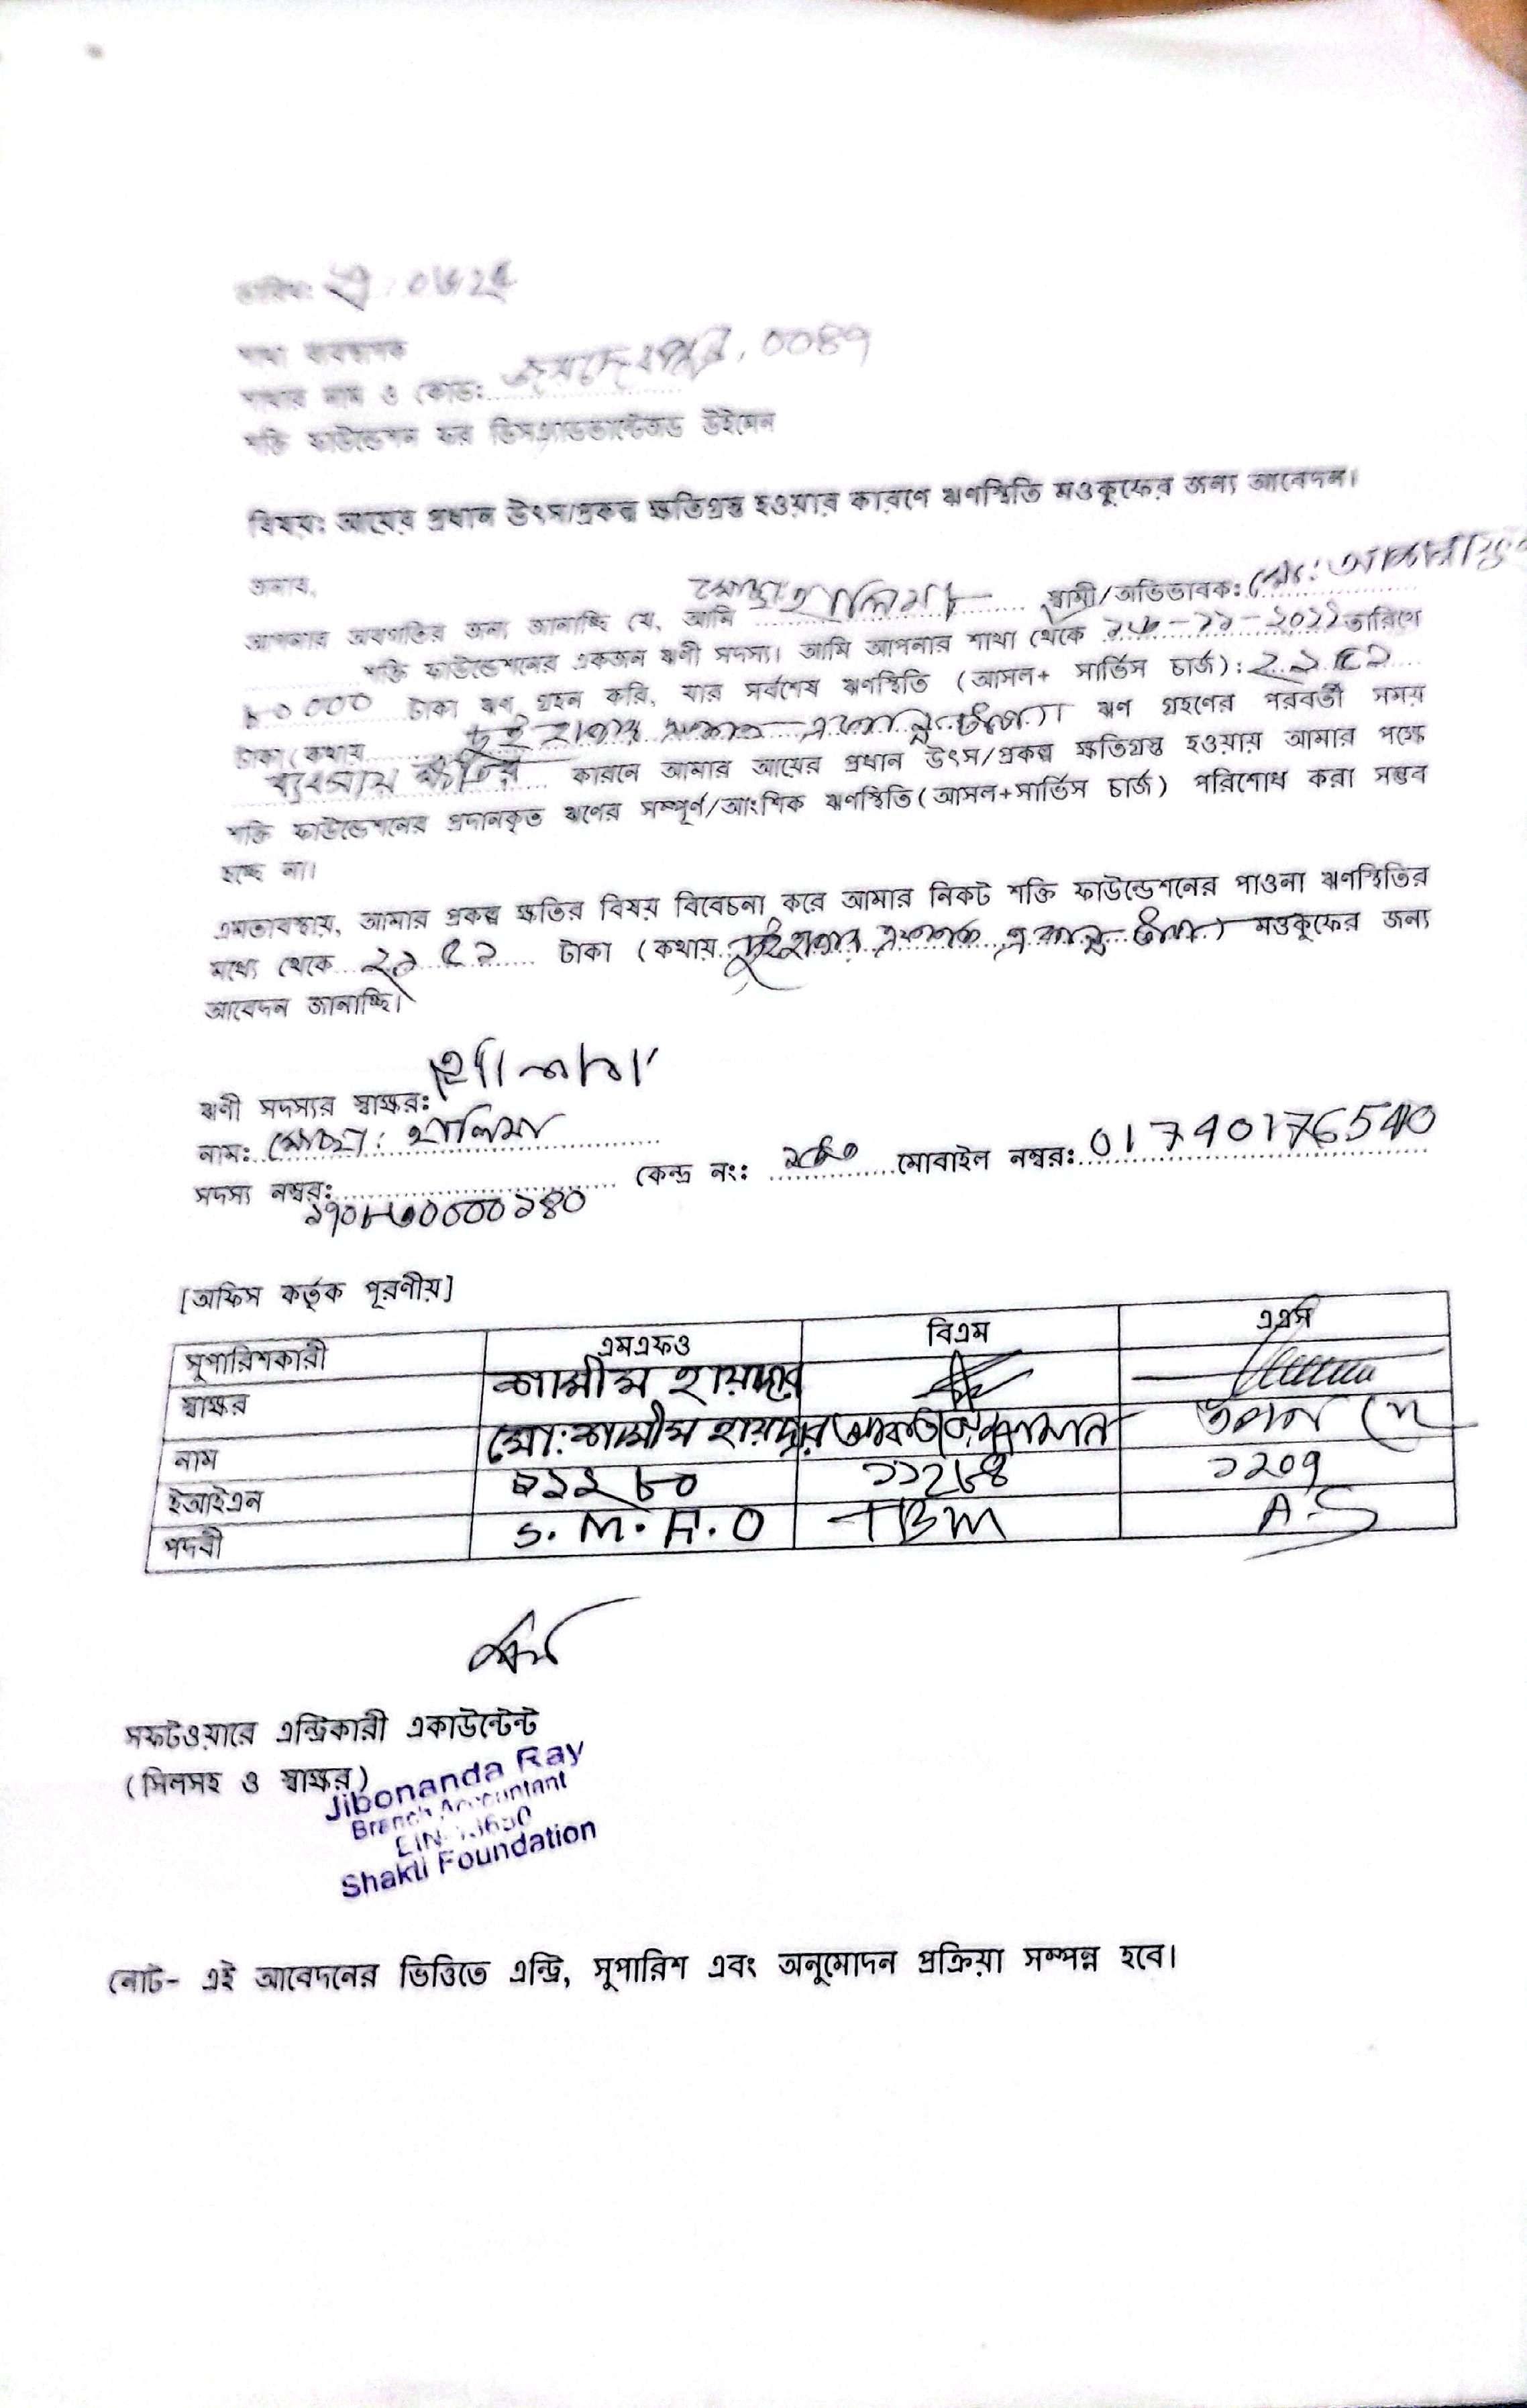 তারিখ:
শাখা ব্যবস্থাপক
শাখার নাম ও কোড: জয়দেবপুর, ০০৪৭
শক্তি ফাউন্ডেশন ফর ডিসএ্যাডভান্টেজড উইমেন
বিষয়: আয়ের প্রধান উৎস/প্রকল্প ক্ষতিগ্রস্ত হওয়ার কারণে ঋণস্থিতি মওকুফের জন্য আবেদন।
জনাব,
আপনার অবগতির জন্য জানাচ্ছি যে, আমি মোছাঃ হালিমা স্বামী/অভিভাবক: মোঃ
শক্তি ফাউন্ডেশনের একজন ঋণী সদস্য। আমি আপনার শাখা থেকে তারিখে
৮০০০০ টাকা ঋণ গ্রহন করি, যার সর্বশেষ ঋণস্থিতি (আসল+ সার্ভিস চার্জ): ২১৫১
টাকা (কথায় দুই হাজার একশত একান্ন টাকা) ঋণ গ্রহণের পরবর্তী সময়
ব্যবসায় ক্ষতির কারনে আমার আয়ের প্রধান উৎস/প্রকল্প ক্ষতিগ্রস্ত হওয়ায় আমার পক্ষে
শক্তি ফাউন্ডেশনের প্রদানকৃত ঋণের সম্পূর্ণ/আংশিক ঋণস্থিতি(আসল+সার্ভিস চার্জ) পরিশোধ করা সম্ভব
হচ্ছে না।
এমতাবস্থায়, আমার প্রকল্প ক্ষতির বিষয় বিবেচনা করে আমার নিকট শক্তি ফাউন্ডেশনের পাওনা ঋণস্থিতির
মধ্যে থেকে ২১৫১ টাকা (কথায় দুই হাজার একশত একান্ন টাকা) মওকুফের জন্য
আবেদন জানাচ্ছি।
ঋণী সদস্যর স্বাক্ষর:
নাম: মোছাঃ হালিমা
সদস্য নম্বর: কেন্দ্র নং: মোবাইল নম্বর: 01740176540
[অফিস কর্তৃক পূরণীয়]
সুপারিশকারী এমএফও বিএম এএস
স্বাক্ষর শামীম হায়দার
নাম মো: শামীম হায়দার
ইআইএন ১২০৭
পদবী S.M.F.O TBM A.S
সফটওয়ারে এন্ট্রিকারী একাউন্টেন্ট
(সিলসহ ও স্বাক্ষর)
Jibonanda Ray
Branch Accountant
EIN-
Shakti Foundation
নোট- এই আবেদনের ভিত্তিতে এন্ট্রি, সুপারিশ এবং অনুমোদন প্রক্রিয়া সম্পন্ন হবে।